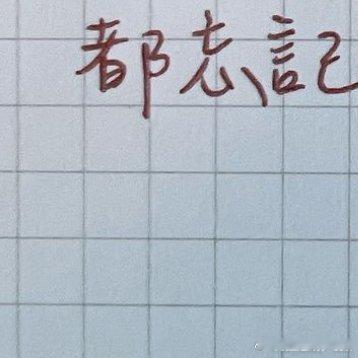 都忘記